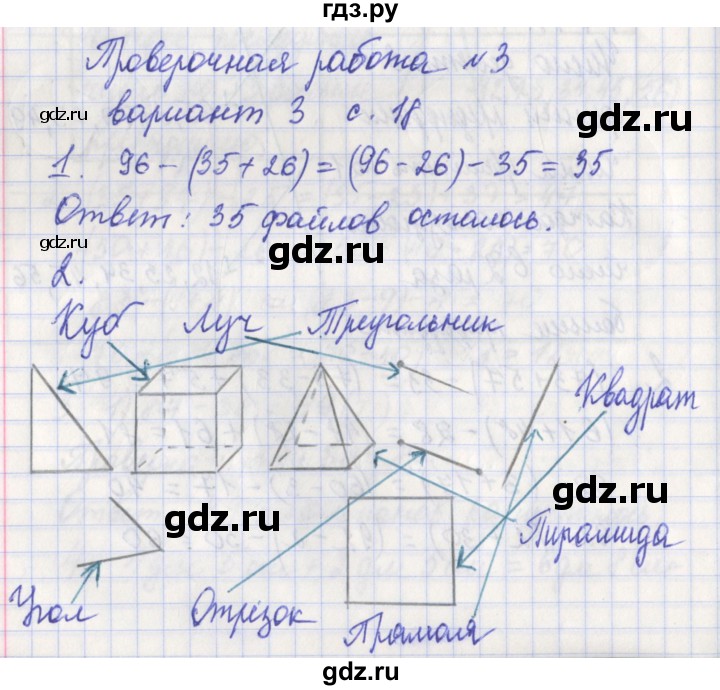 гдз.ру
Проверочная работа №3
gdz.ru
вариант 3 с. 18
gdz.ru
1. 96 - (35 + 26) = (96 - 26) - 35 = 35
Ответ: 35 файлов осталось.
gdz.ru
2.
Куб Луч Треугольник
Квадрат
gdz.ru
gdz.ru
Пирамида
gdz.ru
Угол Отрезок
Прямая
gdz.ru
gdz.ru